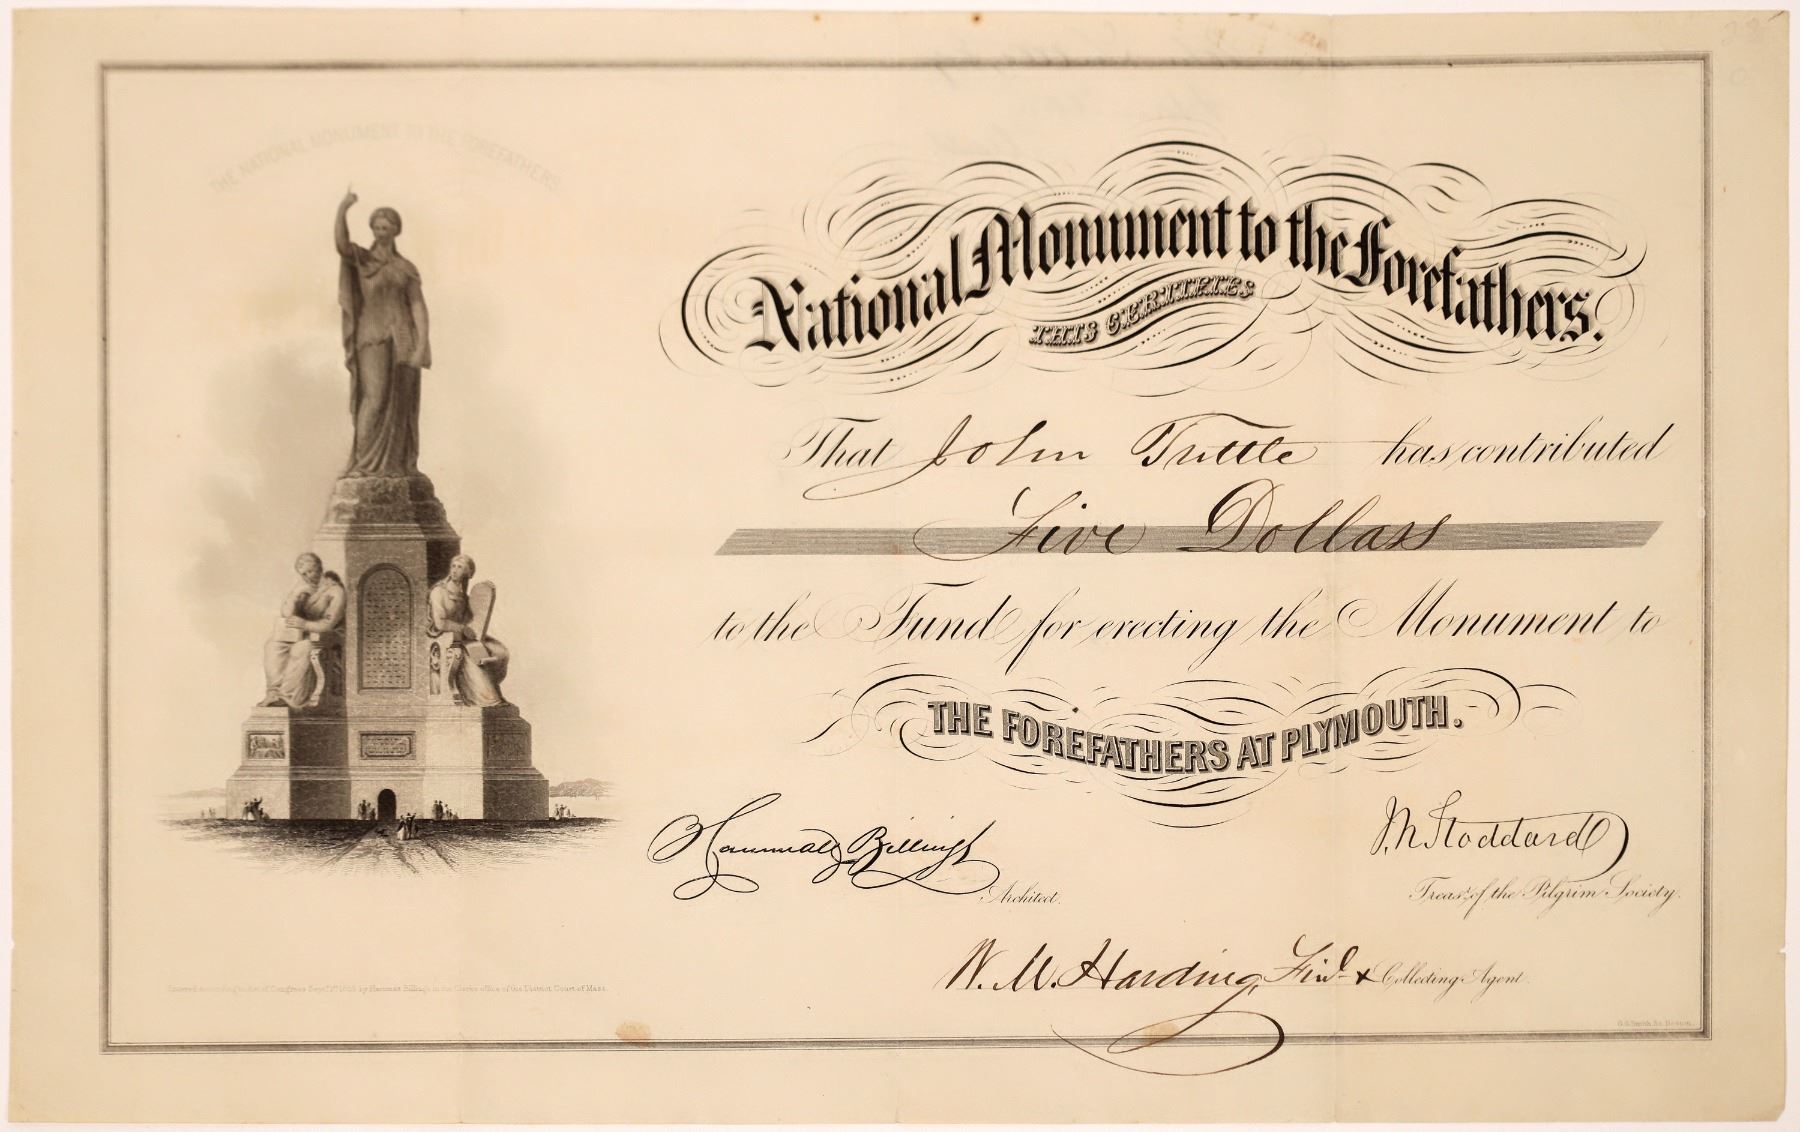 THE NATIONAL MONUMENT TO THE FOREFATHERS.
National Monument to the Forefathers.
THIS CERTIFIES
That John Tuttle has contributed
Five Dollars
to the Fund for erecting the Monument to
THE FOREFATHERS AT PLYMOUTH.
Hammatt Billings
Architect.
J. N. Stoddard
Treasr. of the Pilgrim Society.
W. M. Harding, Finl. & Collecting Agent.
Entered according to Act of Congress Sept. by Hammatt Billings in the Clerks office of the District Court of Mass.
G.G. Smith, Sc. Boston.